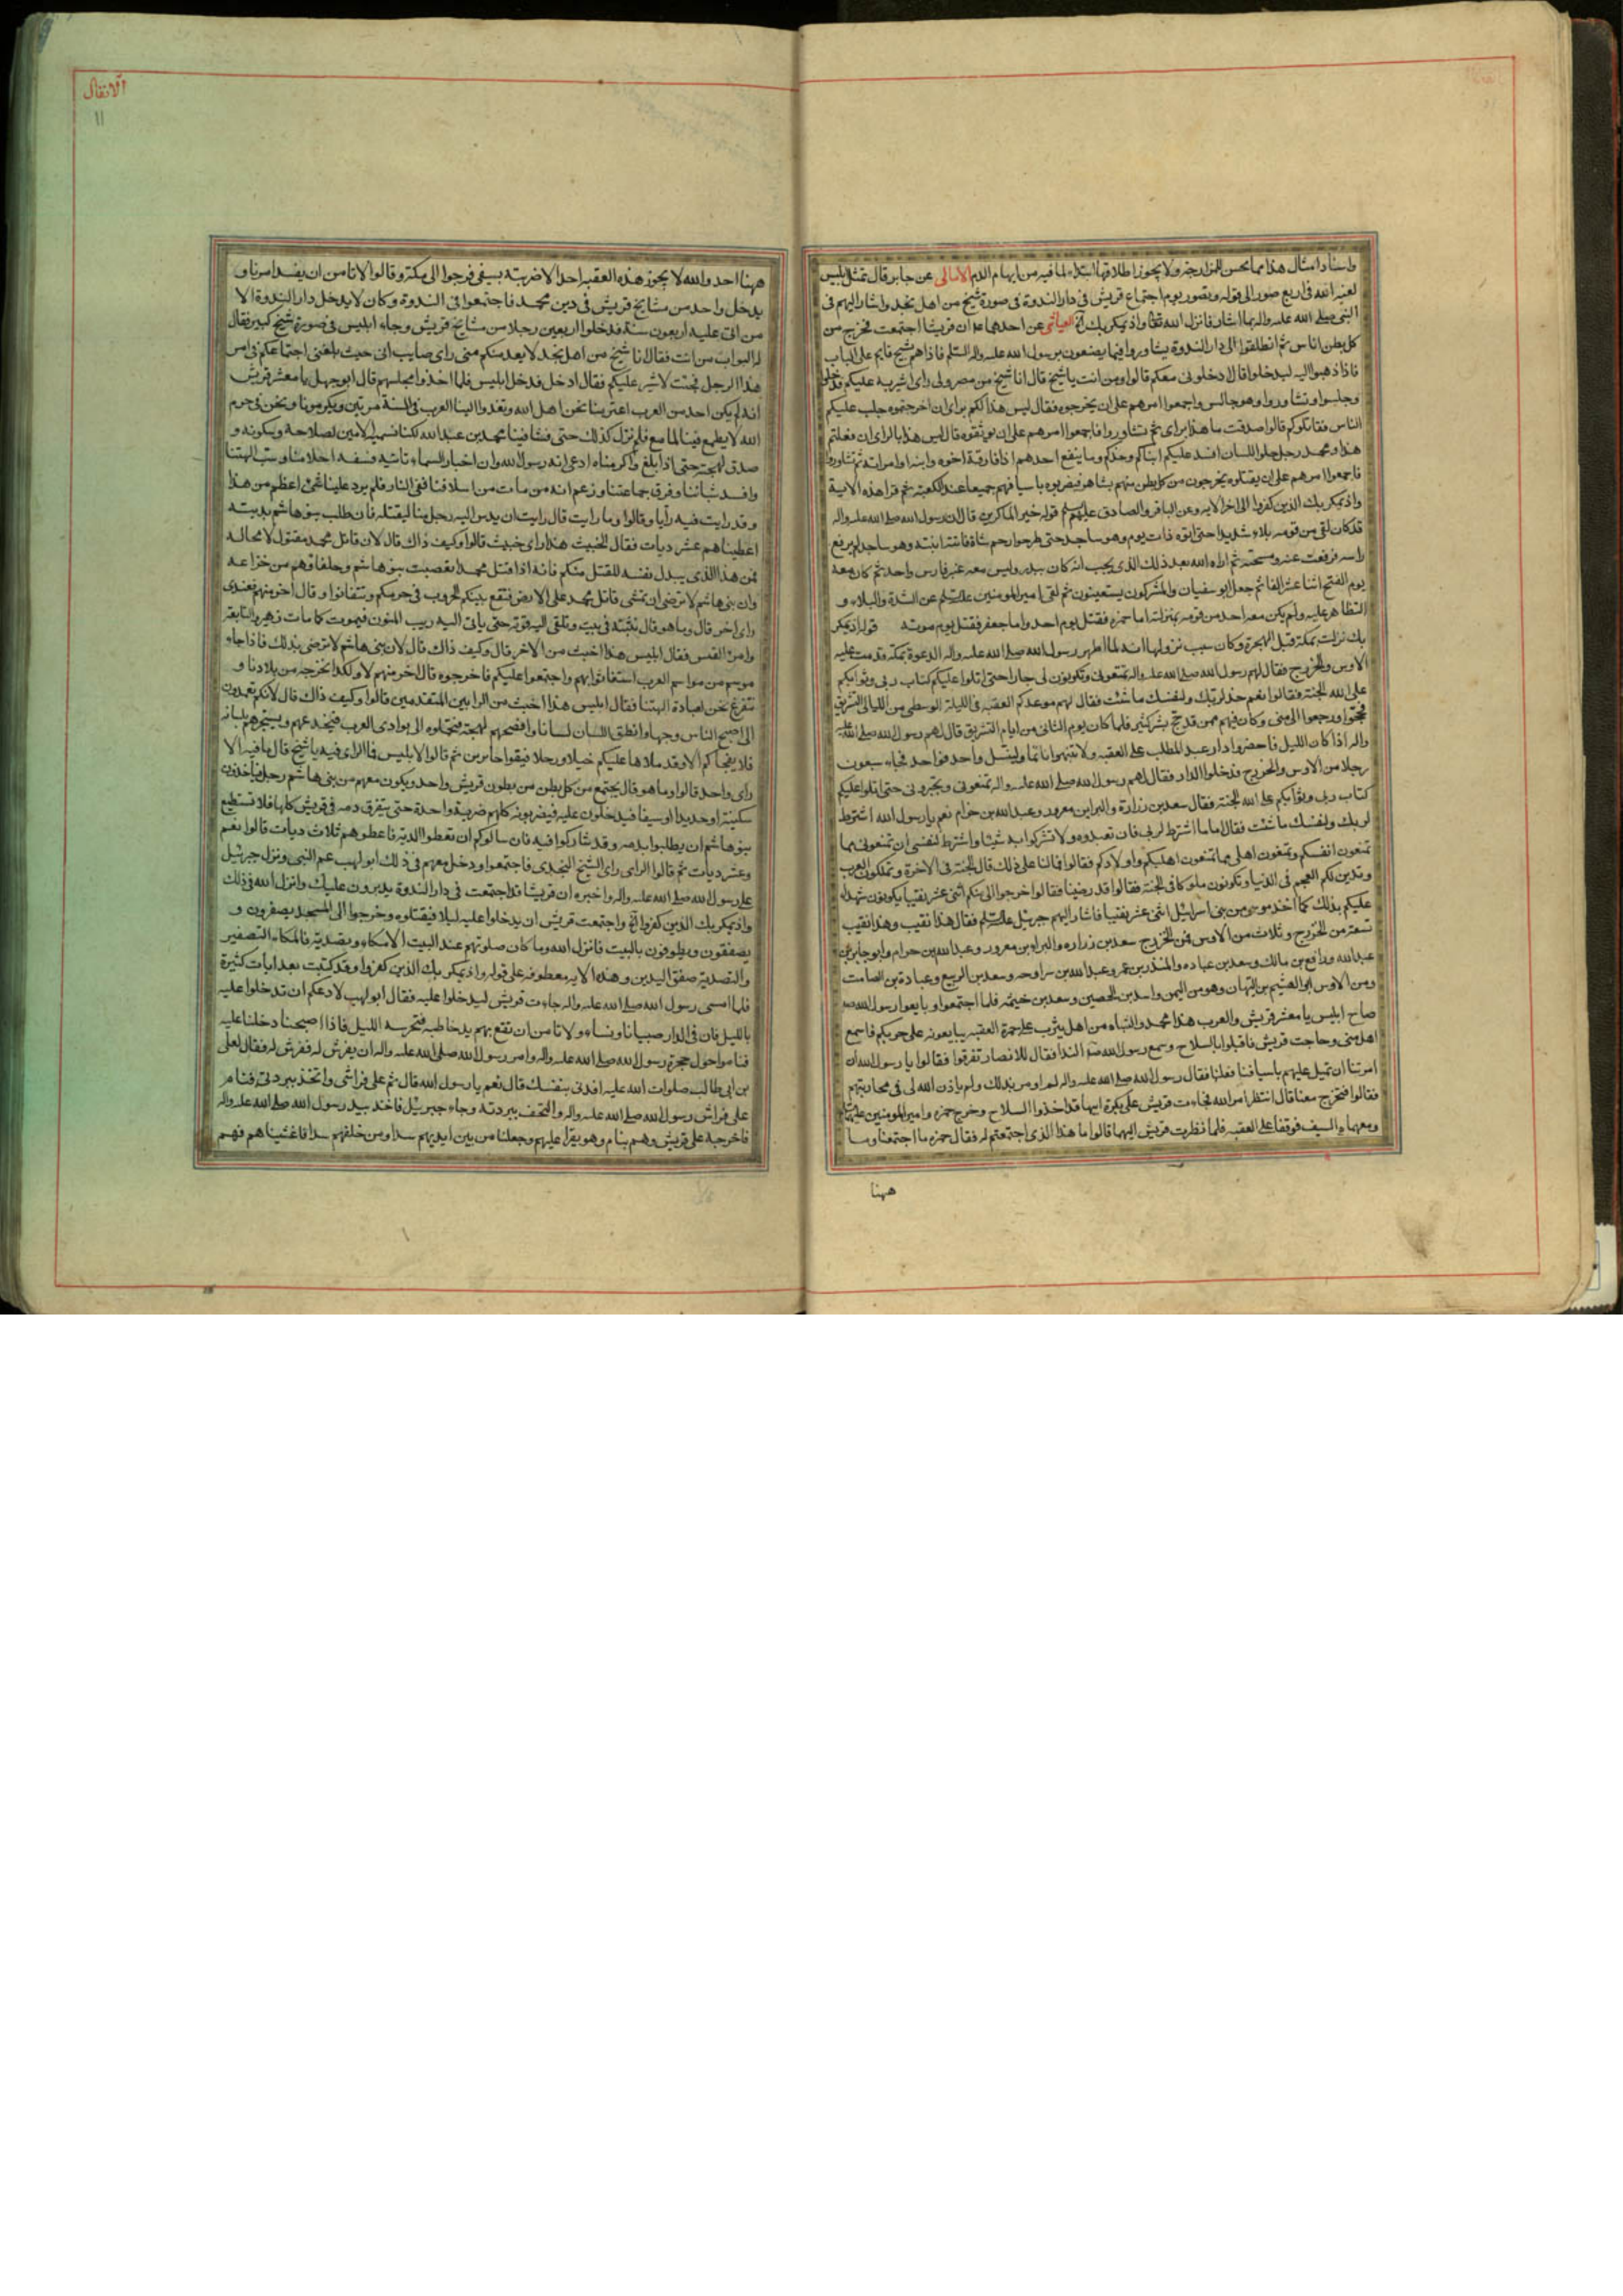 واسناد امثال هذا مما يحسن للمزاوجة ولا يجوز اطلاقها ابتداء لما فيه من ايهام الذم الامالى عن جابر قال تمثل ابليس
لعنه الله فى اربع صور الى قوله وتصور يوم اجتماع قريش فى دار الندوة فى صورة شيخ من اهل نجد واشار اليهم فى
النبى صلى الله عليه واله بما اشار فانزل الله تعالى واذ يمكر بك الخ العياشى عن احدهما ان قريشا اجتمعت فخرج من
كل بطن اناس ثم انطلقوا الى دار الندوة يشاوروا فيما يصنعون برسول الله عليه واله السلم فاذا هم بشيخ قايم على الباب
فاذا ذهبوا اليه ليدخلوا قال ادخلونى معكم قالوا ومن انت يا شيخ قال انا شيخ من مصر ولى راى اشير به عليكم فدخلوا
وجلسوا وتشاوروا وهو جالس واجمعوا امرهم على ان يخرجوه فقال ليس هذا لكم براى ان اخرجتموه جلب عليكم
الناس فقاتلوكم قالوا صدقت ما هذا براى ثم تشاوروا فاجمعوا امرهم على ان يوثقوه قال ليس هذا بالراى ان فعلتم
هذا ومحمد رجل حلو اللسان افسد عليكم ابناكم وخدمكم وما ينفع احدهم اذا فارقه اخوه وابنه او امراته ثم تشاوروا
فاجمعوا امرهم على ان يقتلوه يخرجون من كل بطن منهم بشاهر فيضربوه باسيافهم جميعا عند الكعبة ثم قرا هذه الاية
واذ يمكر بك الذين كفروا الى اخر الايه وعن الباقر والصادق عليهم سلم قوله خير الماكرين قال ان رسول الله صلى الله عليه واله
قد كان لقى من قومه بلاء شديدا حتى اتوه ذات يوم وهو ساجد حتى طرحوا رحم شاة فاتته ابنته وهو ساجد لم يرفع
راسه فرفعت عنه ومسحته ثم اراه الله بعد ذلك الذى يحب انه كان ببدر وليس معه غير فارس واحد ثم كان معه
يوم الفتح اثنا عشر الفا ثم جعل ابو سفيان والمشركون يستغيثون ثم لقى امير المومنين عليه السلم من الشدة والبلاء و
التظاهر عليه ولم يكن معه احد من قومه بمنزلته اما حمزه فقتل يوم احد واما جعفر فقتل يوم موته قوله اذ يمكر
بك نزلت بمكة قبل الهجرة وكان سبب نزولها انه لما اظهر رسول الله صلى الله عليه واله الدعوة بمكة قدمت عليه
الاوس والخزرج فقال لهم رسول الله صلى الله عليه واله تمنعونى وتكونون لى جارا حتى اتلوا عليكم كتاب ربى وثوابكم
على الله الجنة فقالوا نعم خذ لربك ولنفسك ما شئت فقال لهم موعدكم العقبه فى الليلة الوسطى من الليالى التشريق
فحجوا ورجعوا الى منى وكان فيهم ممن قد حج بشر كثير فلما كان يوم الثانى من ايام التشريق قال لهم رسول الله صلى الله عليه
واله اذا كان الليل فاحضروا دار عبد المطلب على العقبه ولا تنبهوا نائما ولينسل واحد فواحد فجاء سبعون
رجلا من الاوس والخزرج فدخلوا الدار فقال لهم رسول الله صلى الله عليه واله تمنعونى وتجيرونى حتى اتلوا عليكم
كتاب ربى وثوابكم على الله الجنة فقال سعد بن زرارة والبرا بن معرور وعبد الله بن حرام نعم يا رسول الله اشترط
لربك ولنفسك ما شئت فقال اما ما اشترط لربى فان تعبدوه ولا تشركوا به شيئا واشترط لنفسى ان تمنعونى بما
تمنعون انفسكم وتمنعون اهلى مما تمنعون اهليكم واولادكم فقالوا فما لنا على ذلك قال الجنة فى الاخرة وتملكون العرب
وتدين لكم العجم فى الدنيا وتكونون ملوكا فى الجنة فقالوا قد رضينا فقال اخرجوا الى منكم اثنى عشر نقيبا يكونون شهداء
عليكم بذلك كما اخذ موسى من بنى اسرائيل اثنى عشر نقيبا فاشار اليهم جبرئيل عليه السلم فقال هذا نقيب وهذا نقيب
تسعة من الخزرج وثلاث من الاوس فمن الخزرج سعد بن زراره والبراء بن معرور وعبد الله بن حرام وابو جابر بن
عبد الله ورافع بن مالك وسعد بن عباده والمنذر بن عمر وعبد الله بن رواحه وسعد بن الربيع وعبادة بن الصامت
ومن الاوس ابو الهيثم بن التيهان وهو من اليمن واسد بن الحصين وسعد بن خيثمه فلما اجتمعوا وبايعوا رسول الله صلى
صاح ابليس يا معشر قريش والعرب هذا محمد والصباه من اهل يثرب على جمرة العقبه يبايعونه على حربكم فاسمع
اهل منى وهاجت قريش فاقبلوا بالسلاح وسمع رسول الله صلى الندا فقال للانصار تفرقوا فقالوا يا رسول الله ان
امرتنا ان نميل عليهم باسيافنا فعلنا فقال رسول الله صلى الله عليه واله لم اومر بذلك ولم ياذن الله لى فى محاربتهم
فقالوا فتخرج معنا قال انتظر امر الله فجاءت قريش على بكرة ابيها قد اخذوا السلاح وخرج حمزه وامير المومنين عليهما
ومعهما السيف فوقفا على العقبه فلما نظرت قريش اليهما قالوا ما هذا الذى اجتمعتم له فقال حمزه ما اجتمعنا وما
ههنا
الانفال
١١
ههنا احد والله لا يجوز هذه العقبه احد الا ضربته بسيفى فرجعوا الى مكة وقالوا لا نامن ان يفسد امرنا و
يدخل واحد من مشايخ قريش فى دين محمد فاجتمعوا فى الندوة وكان لا يدخل دار الندوة الا
من اتى عليه اربعون سنة فدخلوا اربعين رجلا من مشايخ قريش وجاء ابليس فى صورة شيخ كبير فقال
له البواب من انت فقال انا شيخ من اهل نجد لا يعدمكم منى راى صايب انى حيث بلغنى اجتماعكم فى امر
هذا الرجل فجئت لاشير عليكم فقال ادخل فدخل ابليس فلما اخذوا مجلسهم قال ابو جهل يا معشر قريش
انه لم يكن احد من العرب اعز منا نحن اهل الله وتغدوا الينا العرب فى السنة مرتين ويكرمونا ونحن فى حرم
الله لا يطمع فينا طامع فلم نزل كذلك حتى نشا فينا محمد بن عبد الله لكنا نسميه الامين لصلاحه وسكونه و
صدق لهجته حتى اذا بلغ واكرمناه ادعى انه رسول الله وان اخبار السماء تاتيه فسفه احلامنا وسب الهتنا
وافسد شباننا وفرق جماعتنا وزعم انه من مات من اسلافنا ففى النار فلم يرد علينا شئ اعظم من هذا
وقد رايت فيه رايا وقالوا وما رايت قال رايت ان يدس اليه رجل منا ليقتله فان طلب بنو هاشم بديته
اعطيناهم عشر ديات فقال الخبيث هذا راى خبيث قالوا وكيف ذاك قال لان قاتل محمد مقتول لا محاله
فمن هذا الذى يبذل نفسه للقتل منكم فانه اذا قتل محمدا تعصبت بنو هاشم وحلفاؤهم من خزاعه
وان بنى هاشم لا ترضى ان تمشى قاتل محمد على الارض فتقع بينكم الحروب فى حرمكم وتتفانوا وقال اخر منهم فعندى
راى اخر قال وما هو قال نثبته فى بيت ونلقى اليه قوته حتى ياتى اليه ريب المنون فيموت كما مات زهير والنابغه
وامرؤ القيس فقال ابليس هذا اخبث من الاخر قال وكيف ذاك قال لان بنى هاشم لا ترضى بذلك فاذا جاء
موسم من مواسم العرب استغاثوا بهم واجتمعوا عليكم فاخرجوه قال اخر منهم لا ولكنا نخرجه من بلادنا و
نتفرغ نحن لعبادة الهتنا فقال ابليس هذا اخبث من الرايين المتقدمين قالوا وكيف ذاك قال لانكم تعمدون
الى اصبح الناس وجها وانطق اللسان لسانا وافصحهم لهجة فتحملوه الى بوادى العرب فيخدعهم ويسحرهم بلسانه
فلا يفجاكم الا وقد ملاها عليكم خيلا ورجلا فبقوا حائرين ثم قالوا لابليس فما الراى فيه يا شيخ قال ما فيه الا
راى واحد قالوا وما هو قال يجتمع من كل بطن من بطون قريش واحد ويكون معهم من بنى هاشم رجل فياخذون
سكينة او حديدا او سيفا فيدخلون عليه فيضربونه كلهم ضربة واحدة حتى يتفرق دمه فى قريش كلها فلا تستطيع
بنو هاشم ان يطلبوا بدمه وقد شاركوا فيه فان سالوكم ان تعطوا الدية فاعطوهم ثلاث ديات قالوا نعم
وعشر ديات ثم قالوا الراى راى الشيخ النجدى فاجتمعوا ودخل معهم فى ذلك ابو لهب عم النبى ونزل جبرئيل
على رسول الله صلى الله عليه واله واخبره ان قريشا قد اجتمعت فى دار الندوة يدبرون عليك وانزل الله فى ذلك
واذ يمكر بك الذين كفروا الخ واجتمعت قريش ان يدخلوا عليه ليلا فيقتلوه وخرجوا الى المسجد يصفرون و
يصفقون ويطوفون بالبيت فانزل الله وما كان صلوتهم عند البيت الا مكاء وتصدية فالمكاء التصفير
والتصدية صفق اليدين وهذه الايه معطوفه على قوله واذ يمكر بك الذين كفروا وقد كتبت بعد ايات كثيرة
فلما امسى رسول الله صلى الله عليه واله جاءت قريش ليدخلوا عليه فقال ابو لهب لا ادعكم ان تدخلوا عليه
بالليل فان فى الدار صبيانا ونساء ولا نامن ان تقع بهم يد خاطئة فنحرسه الليل فاذا اصبحنا دخلنا عليه
فناموا حول حجرة رسول الله صلى الله عليه واله وامر رسول الله صلى الله عليه واله ان يفرش له ففرش له فقال لعلى
بن ابى طالب صلوات الله عليه افدنى بنفسك قال نعم يا رسول الله قال نم على فراشى واتخذ ببردتى فنام
على فراش رسول الله صلى الله عليه واله والتحف ببردته وجاء جبريئل فاخذ بيد رسول الله صلى الله عليه واله
فاخرجه على قريش وهم نيام وهو يقرا عليهم وجعلنا من بين ايديهم سدا ومن خلفهم سدا فاغشيناهم فهم